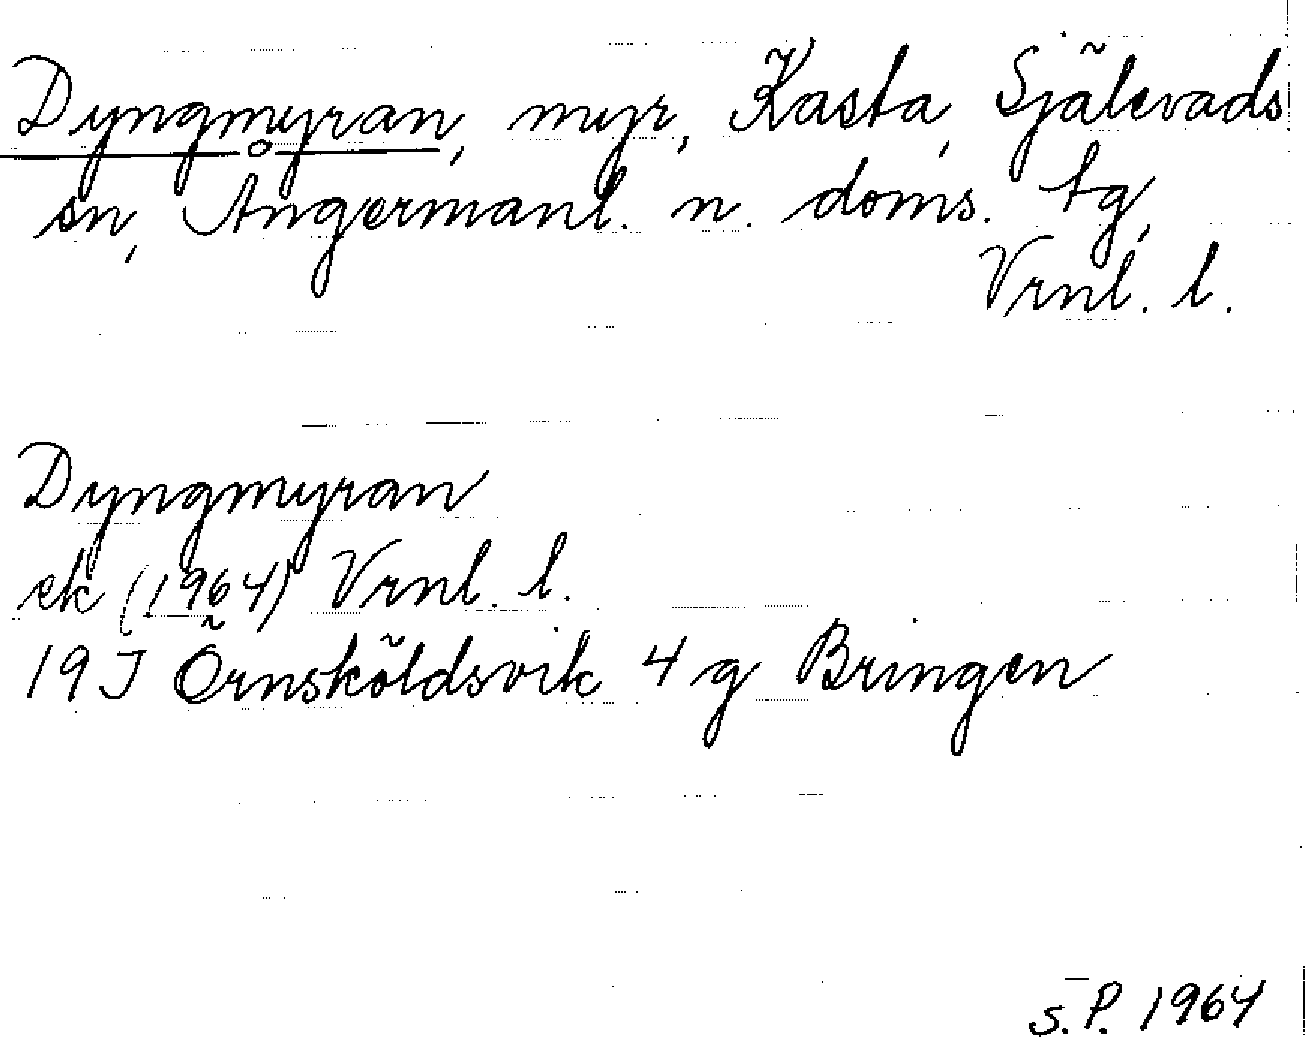 Dyngmyran, myr, Kasta, Själevads
sn, Ångermanl. n. doms. tg,
Vrnl. l.
Dyngmyran
ek (1964) Vrnl. l.
19J Örnsköldsvik 4g Bringen
S.P. 1964